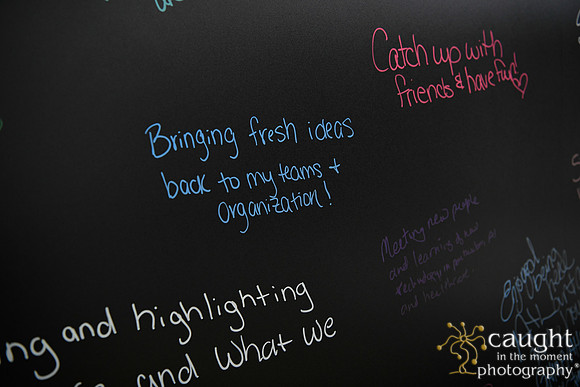 Catch up with
friends & have fun!
Bringing fresh ideas
back to my teams +
organization!
Meeting new people
and learning of new
and healthcare!
ing and highlighting
and what we
caught
in the moment
photography